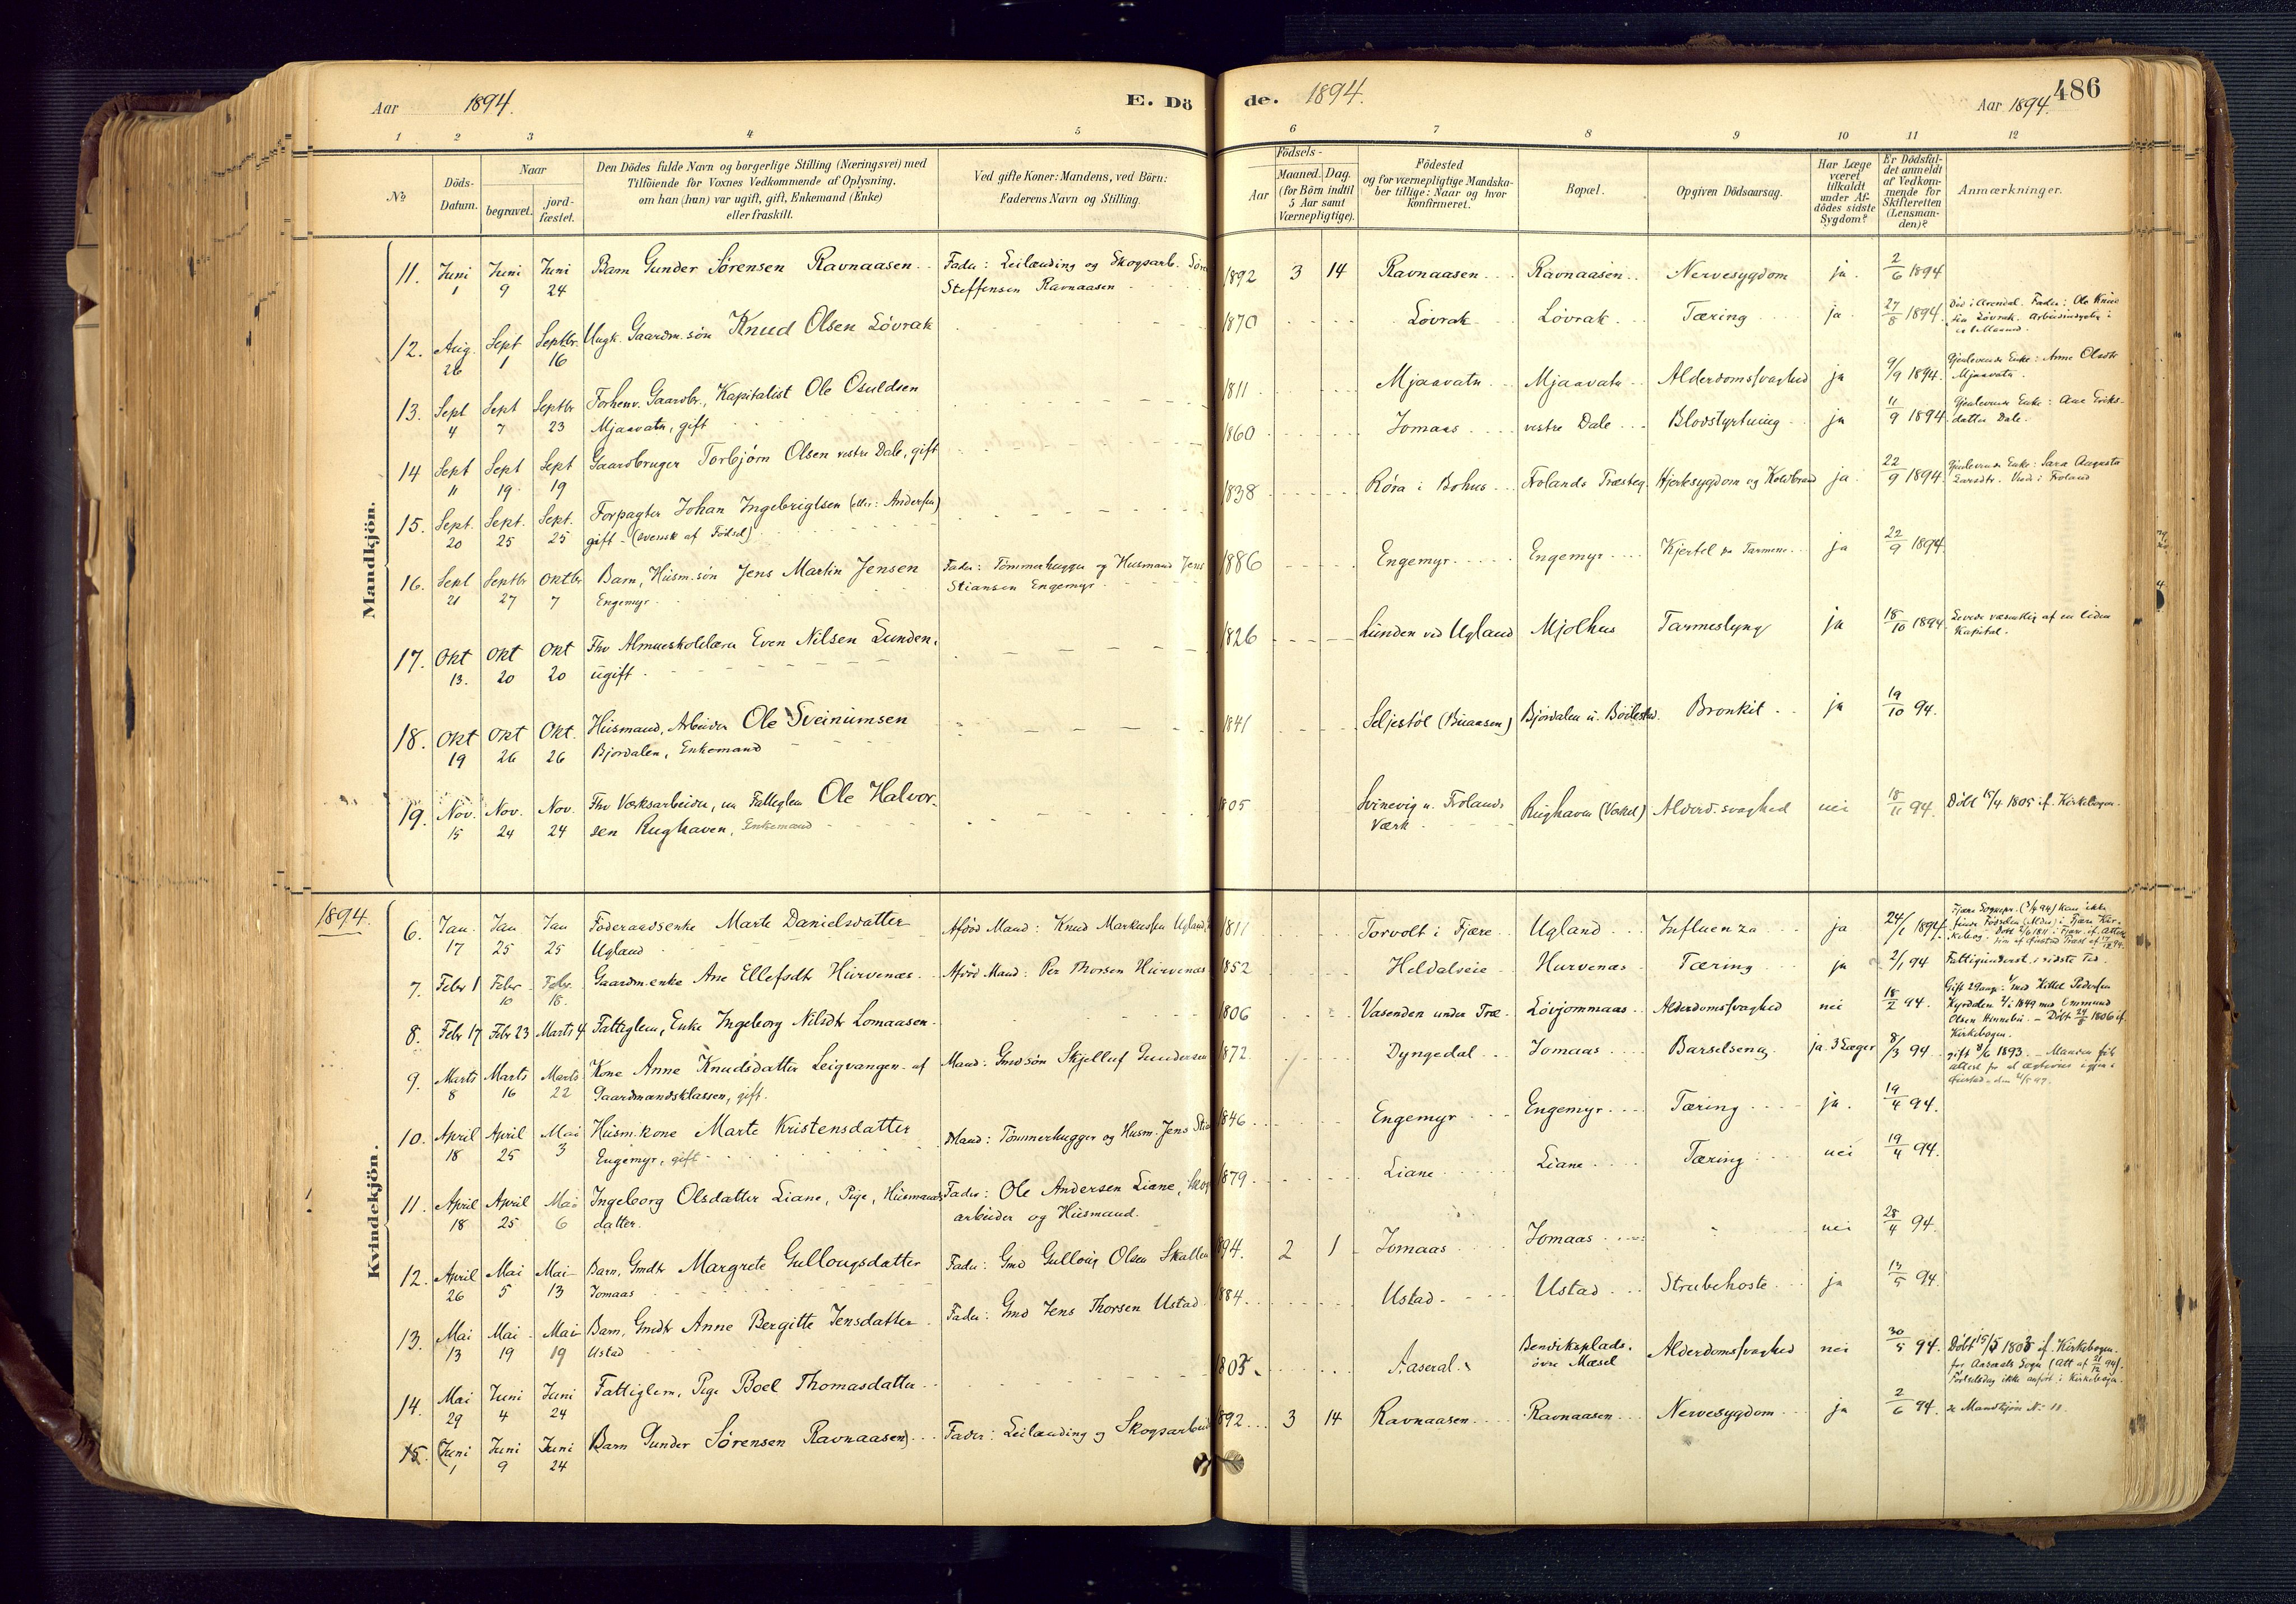 Aar 1894. E. Dö de. 1894. Aar 1894. 486
1 2 3 4 5 6 7 8 9 10 11 12
No
Döds-Datum.
Naar
begravet.
jord-fæstet.
Den Dödes fulde Navn og borgerlige Stilling (Næringsvei) med
Tilföiende for Voxnes Vedkommende af Oplysning,
om han (hun) var ugift, gift, Enkemand (Enke)
eller fraskilt.
Ved gifte Koner: Mandens, ved Börn:
Faderens Navn og Stilling.
Födsels-
Aar
Maaned. Dag.
(for Börn indtil
5 Aar samt
Værnepligtige).
Födested
og for værnepligtige Mandska-
ber tillige: Naar og hvor
konfirmeret.
Bopæl.
Opgiven Dödsaarsag.
Har Læge
været
tilkaldt
under Af-
dödes sidste
Sygdom?
Er Dödsfal-
det anmeldt
af Vedkom-
mende for
Skifteretten
(Lensman-
den)?
Anmærkninger.
Mandkjön.
11. Juni 1 Juni 9 Juni 24 Barn Gunder Sørensen Ravnaasen Fader: Leilænding og Skogsarb. Sørn
Steffensen Ravnaasen 1892 3 14 Ravnaasen Ravnaasen Nervesygdom ja 2/6 1894
12. Aug. 26 Sept 1 Septbr. 16 Ungk. Gaardm. søn Knud Olsen Lövrak 1870 Lövrak Lövrak Tæring ja 27/8 1894. Död i Arendal. Fader: Ole Knud
sen Lövrak.
13. Sept 4 Sept 7 Septbr 23 Forhenv. Gaardbr., Kapitalist Ole Osuldsen
Mjaavatn, gift 1811 Mjaavatn Mjaavatn Alderdomssvaghed ja 9/9 1894. Gjenlevende Enke: Anne Olsdtr
Mjaavatn.
14 Sept 11 Sept 19 Sept 19 Gaardbruger Torbjörn Olsen vestre Dale, gift 1860 Jomaas vestre Dale Blodstyrtning ja 11/9 1894 Gjenlevende Enke: Ane Eriks-
datter Dale.
15. Sept. 20 Sept. 25 Sept. 25 Forpagter Johan Ingebrigtsen (eller: Andersen)
gift - (svensk af Fødsel) 1838 Röra i Bohus Frolands Træsteg Hjertesygdom og Koldbrand ja 22/9 1894 Gjenlevende Enke: Sara Augusta
Larsdtr.
16. Sept 21 Septbr 27 Oktbr 7 Barn, Husm. søn Jens Martin Jensen
Engemyr Fader: Tømmerhugger og Husmand Jens
Stiansen Engemyr 1886 Engemyr Engemyr Kjertel Tarmene ja 22/9 1894
17. Okt 13. Okt 20 Okt 20 Fhv Almueskolelærer Even Nilsen Lunden,
ugift 1826 Lunden ved Ugland Mjølhus Tarmeslyng ja 18/10 1894 Levede væsentlig af en liden
Kapital.
18. Okt 19 Okt 26 Okt. 26 Husmand, Arbeider Ole Sveinumsen
Bjordalen, Enkemand 1841 Seljestöl (Buaasen) Bjordalen u. Böilestad. Bronkit ja 19/10 94.
19. Nov. 15 Nov. 24 Nov. 24 Fhv Værksarbeider, nu Fattiglem Ole Halvor-
sen Rughaven, Enkemand 1805 Svinevig u. Frolands
Værk Rughaven (Verket) Alderd. svaghed nei 18/11 94. Döbt 15/4 1805 if. Kirkebogen.
1894.
Kvindekjön.
6. Jan 17 Jan 25 Jan 25 Föderaadsenke Marte Danielsdatter
Ugland Afdöd Mand: Knud Markussen Ugland 1811 Torvolt i Fjære Ugland Influenza ja 24/1 1894
7. Febr 1 Febr 10 Febr. 18. Gaardm.enke Ane Ellefsdtr Hurvenæs Afdöd Mand: Per Thorsen Hurvenæs 1852 Heldalveie Hurvenæs Tæring ja 2/1 94 Fattigunderst. i sidste Tid.
8. Febr 17 Febr 23 Marts 4 Fattiglem, Enke Ingeborg Nilsdtr Lomaasen 1806 Vasenden under Træ Lövjommaas Alderdomssvaghed nei 18/2 94. Gift 2 Gange: 1/ med Kittel Pedersen
2/ i 1849 med Ommund
Olsen Hinnebu. - Döbt 24/8 1806 if.
Kirkebogen.
9. Marts 8 Marts 16 Marts 22 Kone Anne Knudsdatter Leigvangen af
Gaardmandsklassen, gift. Mand: Gmdsøn Skjelluf Gundersen 1872 Dyngedal Jomaas Barselseng ja 3 Læger 8/3 94 gift 8/6 1893.
10. April 18 April 25 Mai 3 Husm.kone Marte Kristensdatter
Engemyr, gift Mand: Tømmerhugger og Husm. Jens Stia 1846 Engemyr Engemyr Tæring ja. 19/4 94.
11. April 18 April 25 Mai 6 Ingeborg Olsdatter Liane, Pige, Husmands
datter. Fader: Ole Andersen Liane, Skog
arbeider og Husmand. 1879 Liane Liane Tæring nei 19/4 94.
12. April 26 Mai 5 Mai 13 Barn, Gmdtr Margrete Gullougsdatter
Jomaas Fader: Gmd Gulloug Olsen Skallen 894. 2 1 Jomaas Jomaas nei 28/4 94.
13. Mai 13 Mai 19 Mai 19 Barn, Gmdtr Anne Bergitte Jensdatter
Ustad Fader: Gmd Jens Thorsen Ustad. 1884 Ustad Ustad Strubehoste ja 13/5 94.
14. Mai 29 Juni 4 Juni 24 Fattiglem, Pige Boel Thomasdatter 1803 Aaseral Bendiksplads.
övre Mæsel Alderdomssvaghed nei 30/5 94. Döbt 15/5 1803 if. Kirkebogen.
for Aaserals Sogn (Att af 94).
Födselsdag ikke anført i Kirkebogen.
15. (Juni 1 Juni 9 Juni 24 Barn Gunder Sørensen Ravnaasen) Fader: Leilænding og Skogsarbeid 892 3 14 Ravnaasen Ravnaasen Nervesygdom ja 2/6 94. se Mandkjön No 11.